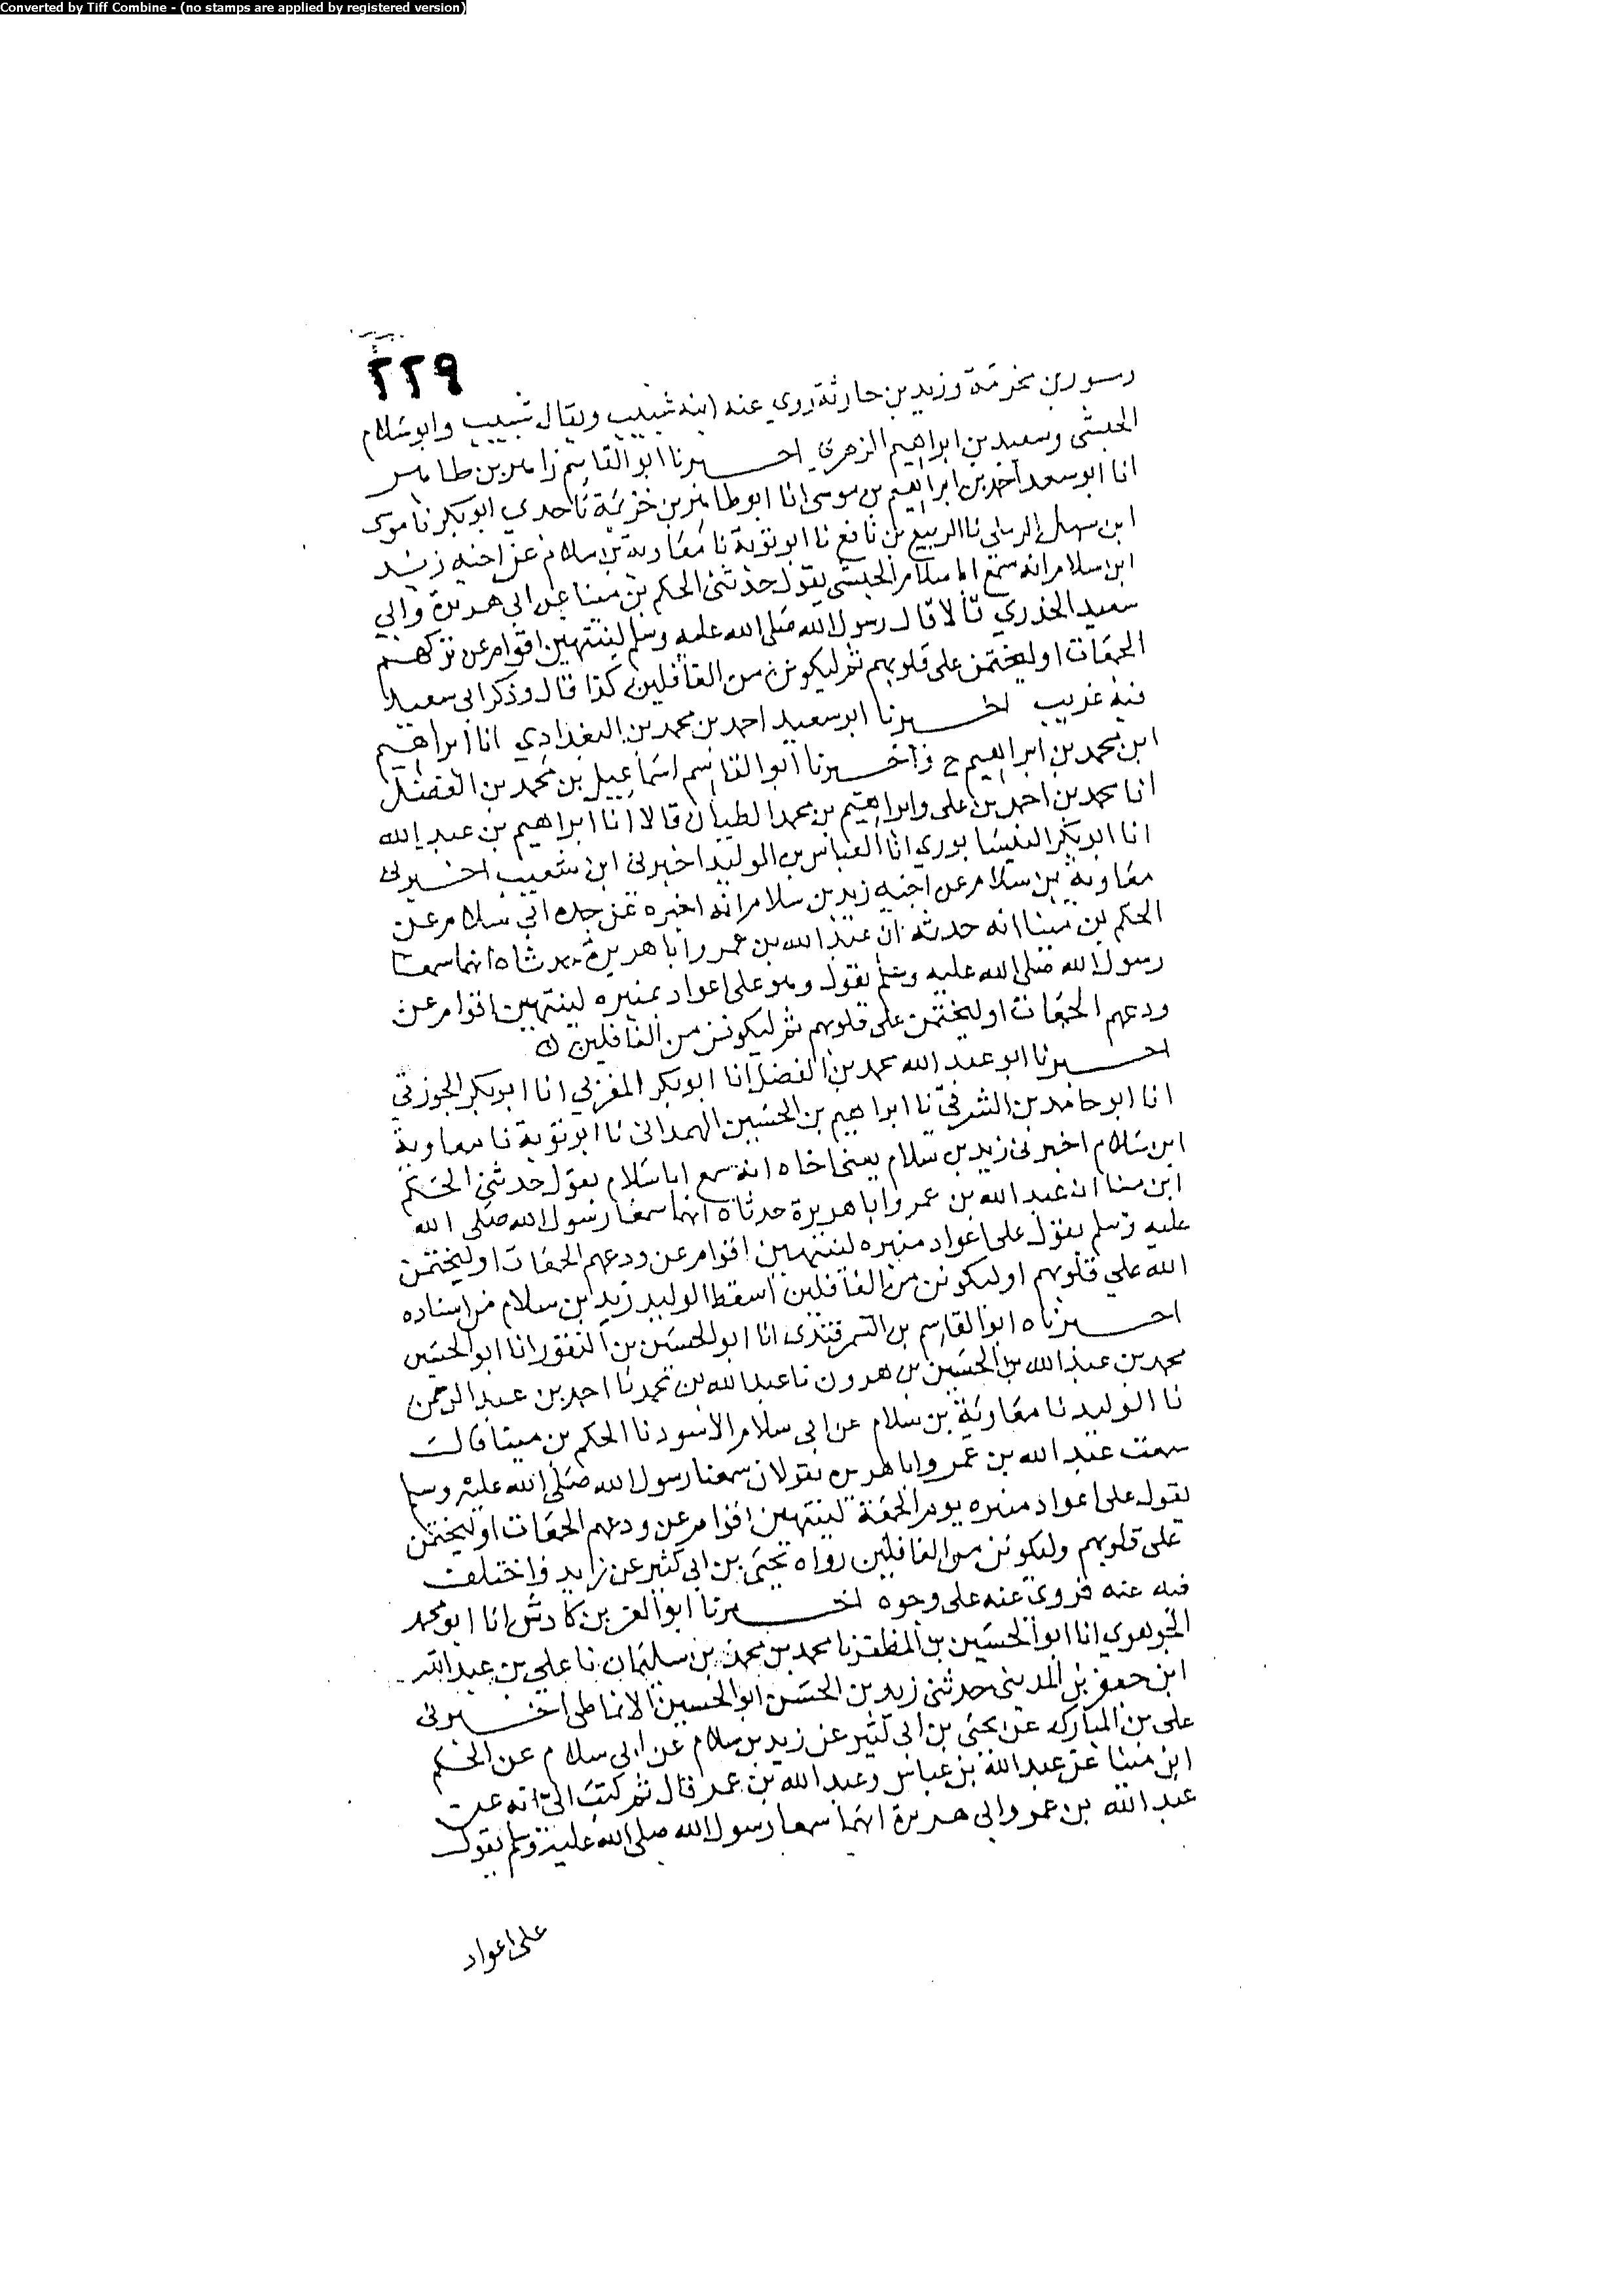 Converted by Tiff Combine - (no stamps are applied by registered version)
٢٢٩
رسور بن مخرمة وزيد بن حارثة روى عنه ابنه شبيب ويقال شبيب وابو سلام
الحبشى وسعيد بن ابراهيم الزهري اخبرنا ابو القاسم زاهر بن طاهر
انا ابو سعد احمد بن ابراهيم بن موسى انا ابو طاهر بن خزيمة نا جدي ابو بكر نا موسى
ابن سهل الرملى نا الربيع بن نافع نا ابو توبة نا معاوية بن سلام عن اخيه زيد
ابن سلام انه سمع ابا سلام الحبشى يقول حدثنى الحكم بن مينا عن ابى هريرة وابي
سعيد الخدري قالا قال رسول الله صلى الله عليه وسلم لينتهين اقوام عن تركهم
الجمعات او ليختمن على قلوبهم ثم ليكونن من الغافلين كذا قال وذكر ابى سعيد
فيه غريب اخبرنا ابو سعيد احمد بن محمد بن البغدادي انا ابراهيم
ابن محمد بن ابراهيم ح واخبرنا ابو القاسم اسماعيل بن محمد بن الفضل
انا محمد بن احمد بن على وابراهيم بن محمد الطيان قالا انا ابراهيم بن عبد الله
انا ابو بكر النيسابوري انا العباس بن الوليد اخبرنى ابن شعيب اخبرنى
معاوية بن سلام عن اخيه زيد بن سلام انه اخبره عن جده ابي سلام عن
الحكم بن مينا انه حدثه ان عبد الله بن عمر وابا هريرة حدثاه انهما سمعا
رسول الله صلى الله عليه وسلم يقول وهو على اعواد منبره لينتهين اقوام عن
ودعهم الجمعات او ليختمن على قلوبهم ثم ليكونن من الغافلين ه
اخبرنا ابو عبد الله محمد بن الفضل انا ابو بكر المغربي انا ابو بكر الجوزقى
انا ابو حامد بن الشرقى نا ابراهيم بن الحسين الهمدانى نا ابو توبة نا معاوية
ابن سلام اخبرنى زيد بن سلام يعنى اخاه انه سمع ابا سلام يقول حدثنى الحكم
ابن مينا ان عبد الله بن عمر وابا هريرة حدثاه انهما سمعا رسول الله صلى الله
عليه وسلم يقول على اعواد منبره لينتهين اقوام عن ودعهم الجمعات او ليختمن
الله على قلوبهم او ليكونن من الغافلين اسقط الوليد زيد بن سلام من اسناده
اخبرناه ابو القاسم بن السمرقندى انا ابو الحسين بن النقور انا ابو الحسين
محمد بن عبد الله بن الحسين بن هرون نا عبد الله بن محمد نا احمد بن عبد الرحمن
نا الوليد نا معاوية بن سلام عن ابى سلام الاسود نا الحكم بن مينا قال
سمعت عبد الله بن عمر وابا هريرة يقولان سمعنا رسول الله صلى الله عليه وسلم
يقول على اعواد منبره يوم الجمعة لينتهين اقوام عن ودعهم الجمعات او ليختمن
على قلوبهم وليكونن من الغافلين رواه يحيى بن ابى كثير عن زيد فاختلف
فيه عنه فروى عنه على وجوه اخبرنا ابو العز بن كادش انا ابو محمد
الجوهري انا ابو الحسين بن المظفر نا محمد بن محمد بن سليمان نا على بن عبد الله
ابن جعفر بن المدينى حدثنى زيد بن الحسن ابو الحسين الانماطى اخبرنى
على بن المبارك عن يحيى بن ابى كثير عن زيد بن سلام عن ابى سلام عن الحكم
ابن مينا عن عبد الله بن عباس وعبد الله بن عمر قال ثم كتب الىّ انه عن
عبد الله بن عمر وابى هريرة انهما سمعا رسول الله صلى الله عليه وسلم يقول
على اعواد